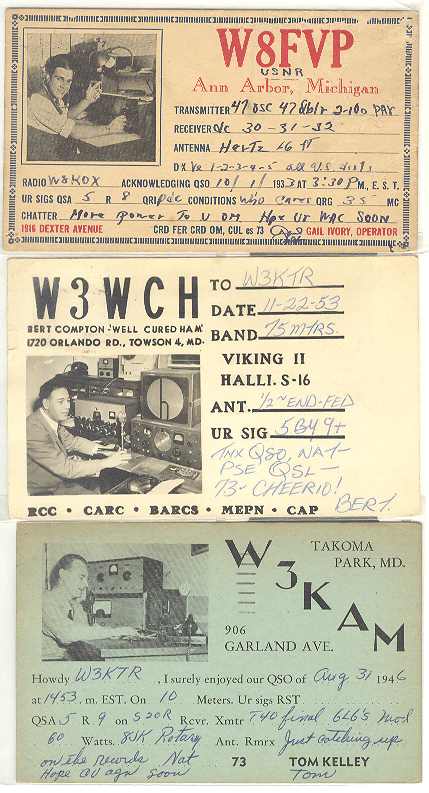 W8FVP
USNR
Ann Arbor, Michigan
TRANSMITTER 47 OSC 47 dblr 2-10s PAR
RECEIVER dc 30-31-32
ANTENNA Hertz 16 ft
DX Ve 1-2-3-4-5 all U.S. dists
RADIO W8KOX ACKNOWLEDGING QSO 10/1/1933 AT 3:30 P M., E. S. T.
UR SIGS QSA 5 R 8 dc CONDITIONS who cares QRG 35 MC
CHATTER More Power To U OM. Hpe Ur WAC SOON
1916 DEXTER AVENUE CRD FER CRD OM, CUL es 73 GAIL IVORY, OPERATOR
W3WCH
BERT COMPTON-'WELL CURED HAM'
1720 ORLANDO RD., TOWSON 4, MD.
TO W3KTR
DATE 11-22-53
BAND 75 MTRS.
VIKING II
HALLI. S-16
ANT. 1/2~ END-FED
UR SIG 5 BY 9+
TNX QSO, NAT-
PSE QSL-
73- CHEERIO!
BERT.
RCC • CARC • BARCS • MEPN • CAP
W3KAM
TAKOMA
PARK, MD.
906
GARLAND AVE.
Howdy W3KTR, I surely enjoyed our QSO of Aug 31 1946
at 1453.m. EST. On 10 Meters. Ur sigs RST
QSA 5 R. 9 on S20R Rcvr. Xmtr T40 final 6L6's mod
60 Watts. 8JK Rotary Ant. Rmrx Just catching up
on the records Nat
Hope CU agn soon
73 TOM KELLEY
Tom